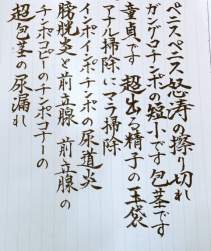 ペニスペニス怒涛の擦り切れ
ガンゲロチンポの短小です包茎です
童貞です 超出る精子の玉袋
アナル掃除にマラ掃除
インポインポチンポの尿道炎
膀胱炎と前立腺 前立腺の
チンポコピーのチンポコナーの
超包茎の尿漏れ